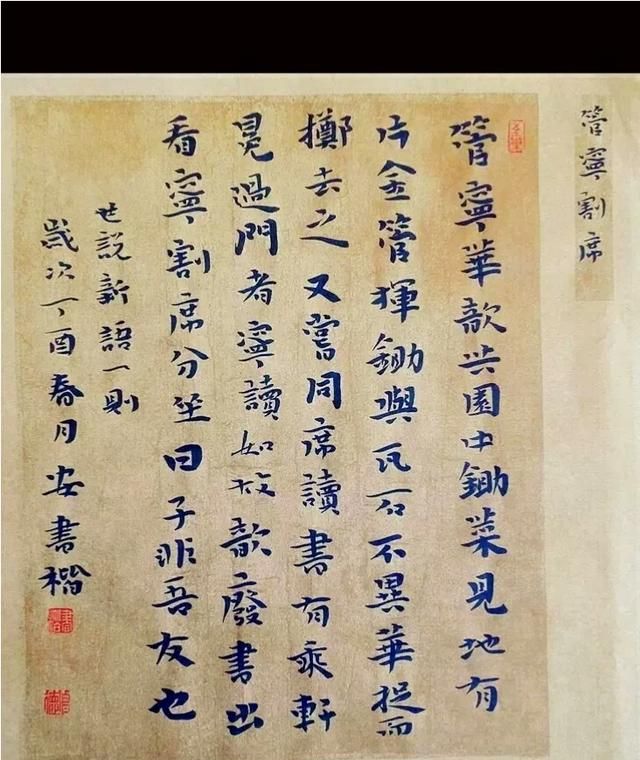 管寧割席
管寧華歆共園中鋤菜見地有
片金管揮鋤與瓦石不異華捉而
擲去之又嘗同席讀書有乘軒
冕過門者寧讀如故歆廢書出
看寧割席分坐曰子非吾友也
世説新語一則
歲次丁酉春月安書楷